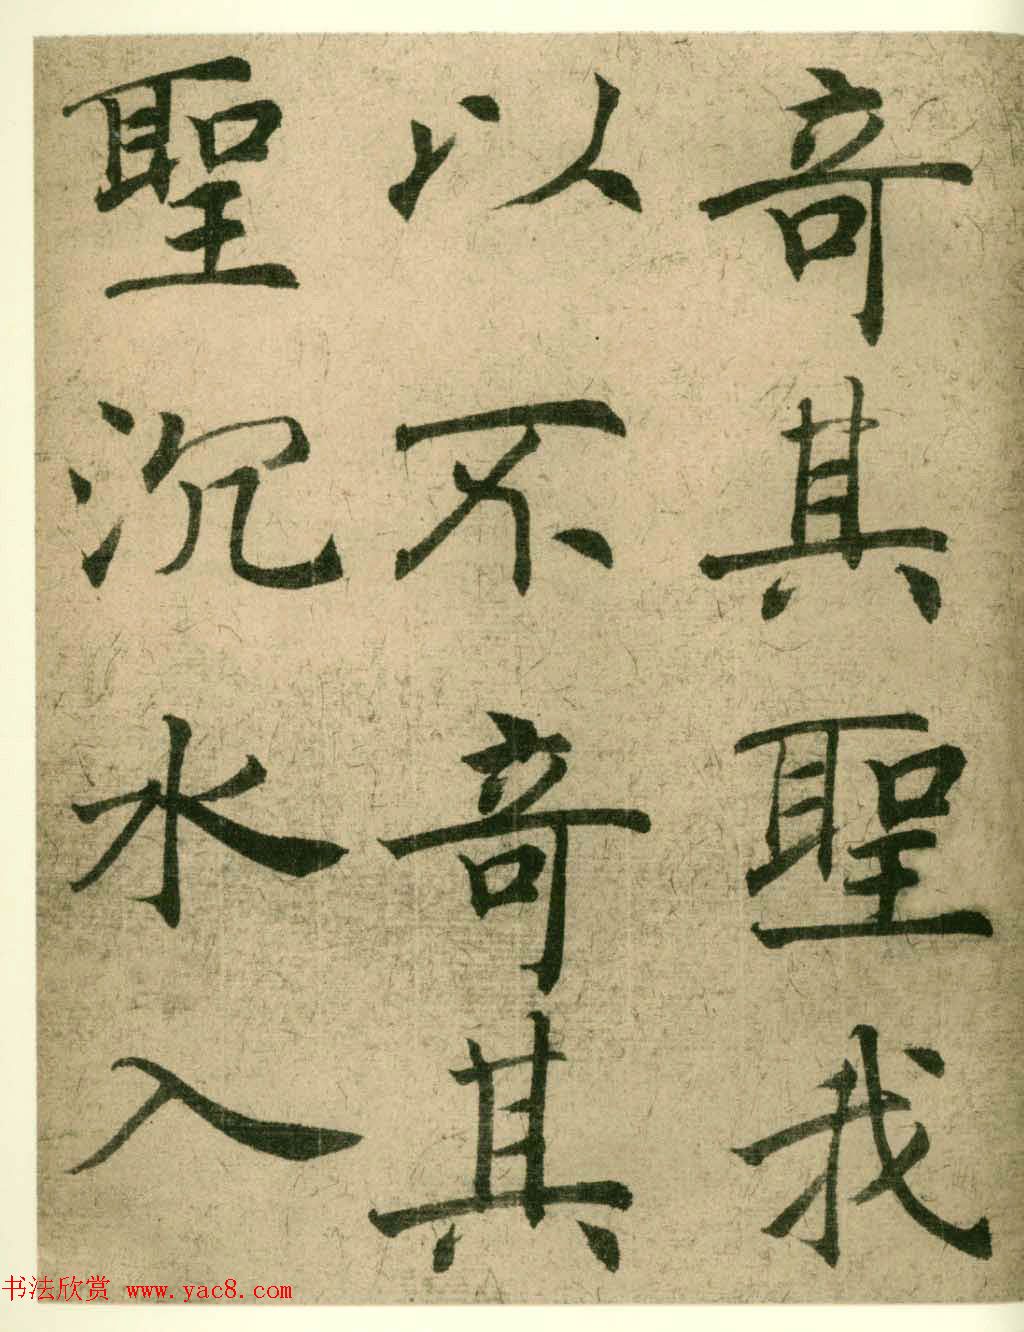 奇其聖我
以不奇其
聖沉水入
书法欣赏 www.yac8.com